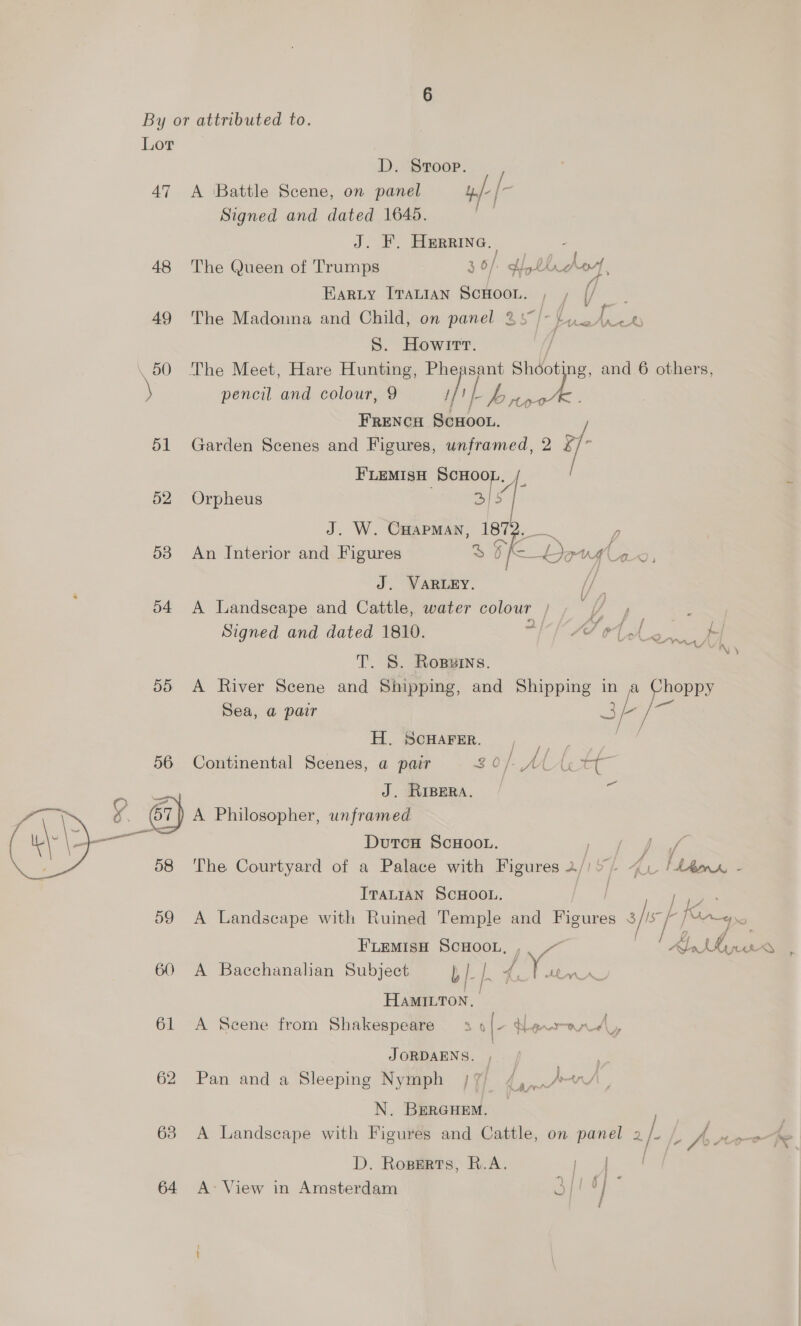 6
By or attributed to.
Lot
D. Stoop.
47 A Battle Scene, on panel 4/-/-
Signed and dated 1645.
J. F. Herring.
48 The Queen of Trumps 30/-
Early Italian School.
49 The Madonna and Child, on panel 25/-
S. Howitt.
50 The Meet, Hare Hunting, Pheasant Shooting, and 6 others,
pencil and colour, 9 1/1/-
French School.
51 Garden Scenes and Figures, unframed, 2 8/-
Flemish School.
52 Orpheus 3/5/-
J. W. Chapman, 1872.
53 An Interior and Figures Douglas.
J. Varley.
54 A Landscape and Cattle, water colour
Signed and dated 1810.
T. S. Robbins.
55 A River Scene and Shipping, and Shipping in a Choppy
Sea, a pair 3/-/-
H. Schafer.
56 Continental Scenes, a pair 30/-
J. Ribera.
57 A Philosopher, unframed
4/-/-
Dutch School.
58 The Courtyard of a Palace with Figures 2/15/-
Italian School.
59 A Landscape with Ruined Temple and Figures 3/15/-
Flemish School.
60 A Bacchanalian Subject
Hamilton.
61 A Scene from Shakespeare
Jordaens.
62 Pan and a Sleeping Nymph
N. Berghem.
63 A Landscape with Figures and Cattle, on panel 2/-/-
D. Roberts, R.A.
64 A View in Amsterdam